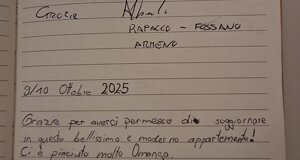 Grazie
RAPACCO - FOSSANO
ARMENO
9/10 Ottobre 2025
Grazie per averci permesso di soggiornare
in questo bellissimo e moderno appartamento!
Ci è piaciuto molto Omegna.